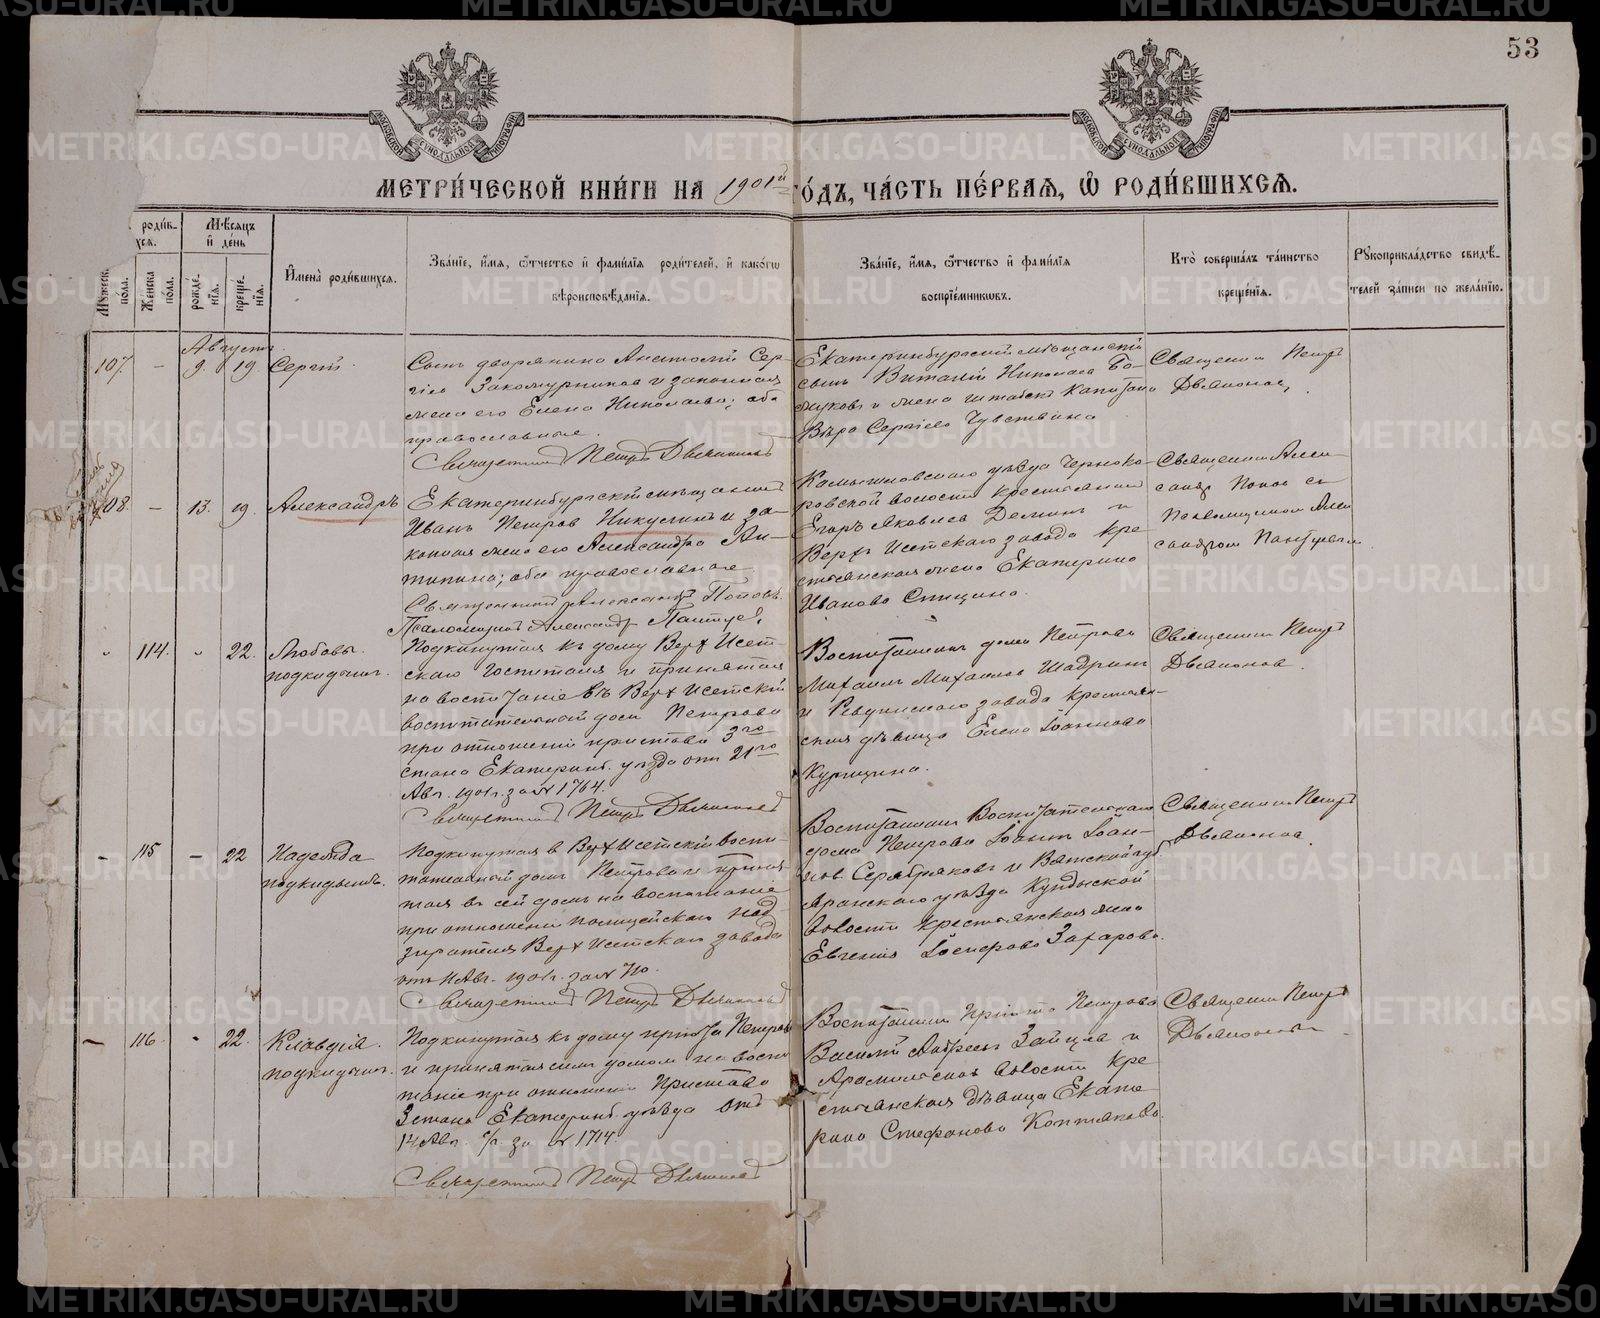 53
МОСКОВСКОЙ СѴНОДАЛЬНОЙ ТИПОГРАФІИ
МОСКОВСКОЙ СѴНОДАЛЬНОЙ ТИПОГРАФІИ
МЕТРИ́ЧЕСКОЙ КНИ́ГИ НА 1901й ГО́ДЪ, ЧА́СТЬ ПЕ́РВАЯ, Ѽ РОДИ́ВШИХСЯ.
роди́в-
хся.
Мѣсяцъ
и҆ де́нь
Мꙋжеск.
пола.
Же́нска
по́ла.
рожде́-
нїя.
креще́-
нїя.
И҆мена̀ роди́вшихся.
Зва́нїе, и҆́мя, ѻ҆́тчество и҆ фами́лїя роди́телей, и҆ како́гѡ
вѣроисповѣ́данїя.
Зва́нїе, и҆́мя, ѻ҆́тчество и҆ фами́лїя
воспрїе́мникѡвъ.
Кто̀ соверша́лъ та́инство
креще́нїя.
Рꙋкоприкла́дство свидѣ́-
телей за́писи по жела́нїю.
Августъ
107. - 9. 19 Сергій.
Сынъ дворянина Анатолій Сер-
и законная
жена его Елена Николаева; оба
православные.
Священникъ Петръ
Екатеринбургскій мѣщанскій
сынъ Виталій Николаев
и жена штабсъ капитана
Вѣра Сергіева Чувствина
Священник Петръ
108. - 13. 19. Александръ
Екатеринбургскій мѣщанинъ
Иванъ Петров Никулинъ и за-
конная жена его Александра Ан-
типина; оба православные
Священникъ Александръ Поповъ.
Псаломщикъ Александр
Камышловскаго уѣзда
волости крестьянинъ
Егоръ Яковлев Деминъ и
Верхъ Исетскаго завода кре-
стьянская жена Екатерина
Иванова Спицина.
Священник Алек-
сандр Попов съ
Псаломщиком Алек
сандром
114. 22. Любовь
подкидышъ.
Подкинутая къ дому Верх Исет-
скаго госпиталя и принятая
на воспитаніе въ Верх Исетскій
воспитательный дом Петрова
при отношеніи пристава 3го
стана Екатеринб. уѣзда отъ 21го
Авг. 1901г. за № 1764.
Священникъ Петръ
Воспитанник дома Петрова
Михаилъ Михаилов Шадринъ
и Ревдинскаго завода крестьян-
ская дѣвица Елена Іоаннова
Курицина.
Священник Петръ
- 115 - 22 Надежда
подкидышъ.
Подкинутая в Верх Исетскій воспи-
тательный домъ Петрова и приня-
тая въ сей домъ на воспитаніе
при отношеніи полицейскаго над-
зирателя Верх Исетскаго завода
отъ 11 Авг. 1901г. за № 710.
Священникъ Петръ
Воспитанник Воспитательнаго
дома Петрова Іоаннъ Іоан-
нов. Серебряковъ и Вятской губ.
Яранскаго уѣзда
волости крестьянская жена
Евгенія Іосифова Захарова.
Священник Петръ
- 116. 22. Клавдія.
подкидышъ.
Подкинутая къ дому пріюта Петрова
и принятая симъ домом на воспи
таніе при отношеніи Пристава
3 стана Екатеринб. уѣзда отъ
14 Авг. с/г за № 1714.
Священникъ Петръ
Воспитанник Пріюта Петрова
Василій Андреев Зайцев и
Арамильской волости кре-
стьянская дѣвица Екате-
рина Стефанова Коптякова.
Священник Петръ
METRIKI.GASO-URAL.RU